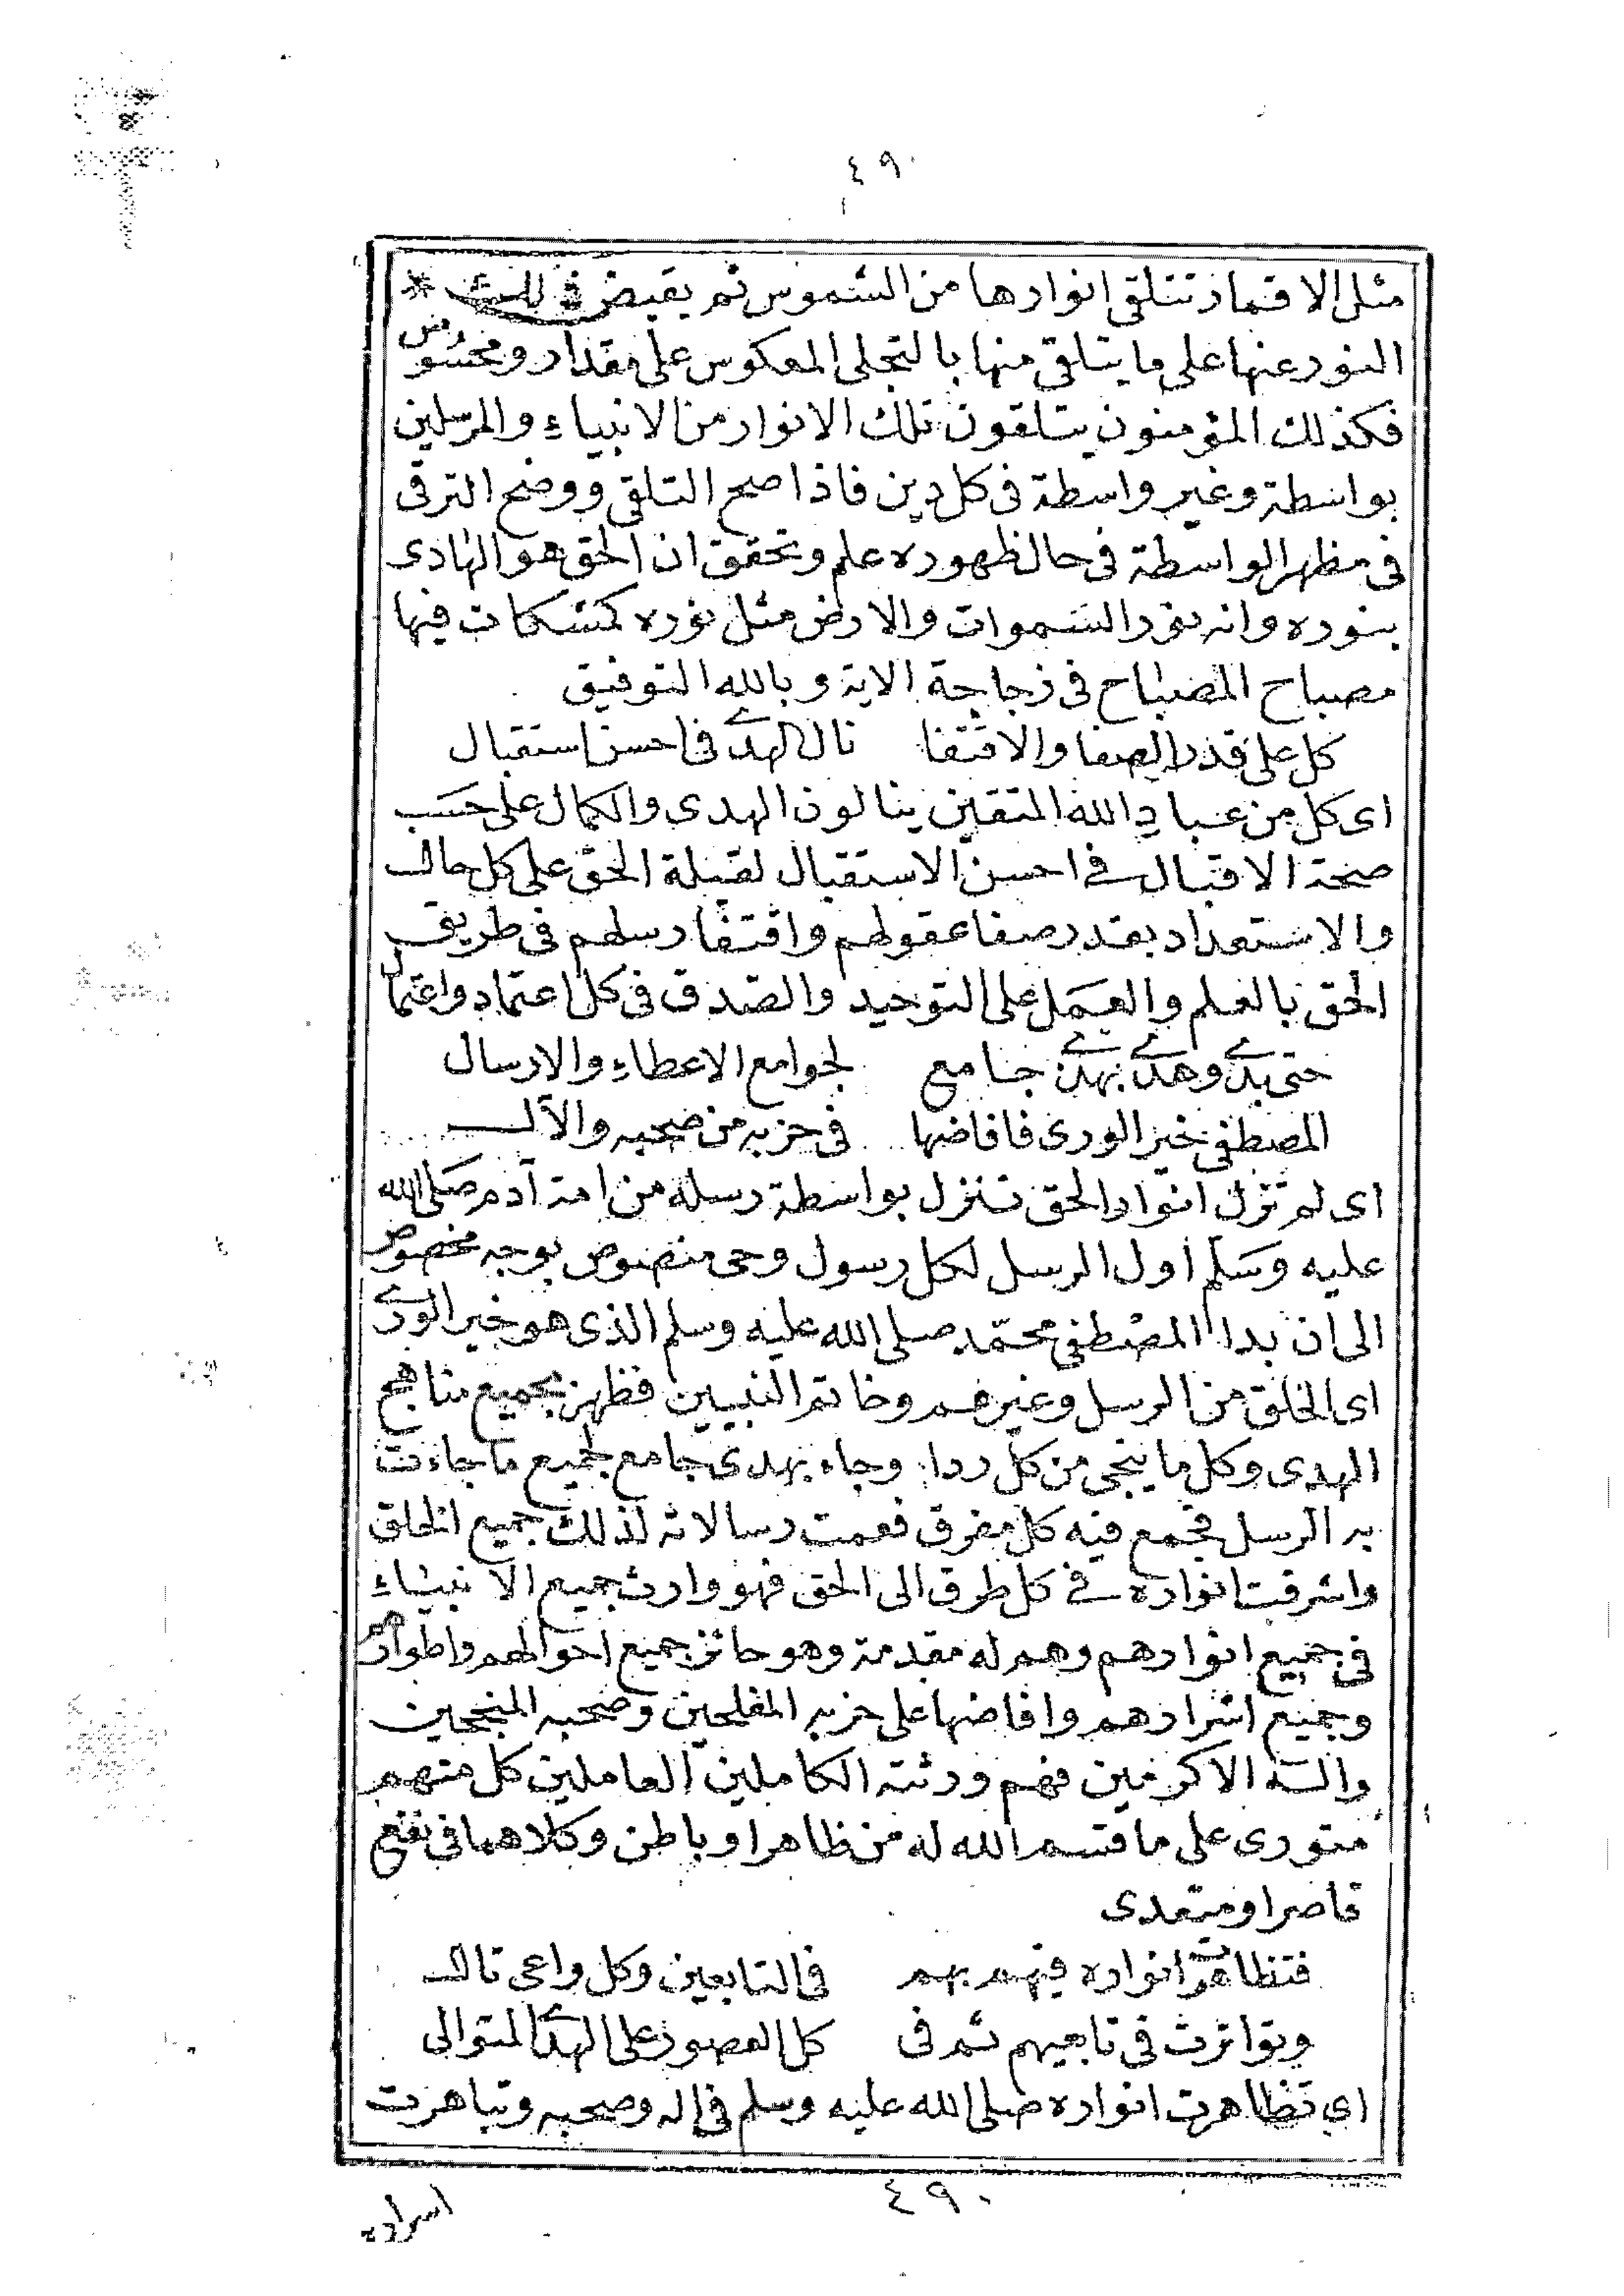 ٤٩٠
مثل الاقمار تتلقى انوارها من الشموس ثم يفيض
النور عنها على ما يتلقى منها بالتجلى المعكوس على مقدار ومحسوس
فكذلك المؤمنون يتلقون تلك الانوار من الانبياء والمرسلين
بواسطة وغير واسطة فى كل دين فاذا صح التلقى ووضح الترقى
فى مظهر الواسطة فى حال ظهوره علم وتحقق ان الحق هو الهادى
بنوره وانه نور السموات والارض مثل نوره كمشكات فيها
مصباح المصباح فى زجاجة الاية وبالله التوفيق
كل على قدر الصفا والاقتفا نال الهدى فى احسن استقبال
اى كل من عباد الله المتقين ينالون الهدى والكمال على حسب
صحة الاقبال فى احسن الاستقبال لقبلة الحق على كل حال
والاستعداد بقدر صفا عقولهم واقتفا رسلهم فى طريق
الحق بالعلم والعمل على التوحيد والصدق فى كل اعتماد واعتمال
حتى بدى وهدى بهدى جامع لجوامع الاعطاء والارسال
المصطفى خير الورى فافاضها فى حزبه من صحبه والآل
اى لم تزل انوار الحق تنزل بواسطة رسله من امة آدم صلى الله
عليه وسلم اول الرسل لكل رسول وحى منصوص بوجه مخصوص
الى ان بدا المصطفى محمد صلى الله عليه وسلم الذى هو خير الورى
اى الخلق من الرسل وغيرهم وخاتم النبيين فظهر بجميع مناهج
الهدى وكل ما ينجى من كل ردا وجاه بهدى جامع لجميع ما جاءت
به الرسل فجمع فيه كل مفرق فعمت رسالاته لذلك جميع الخلق
واشرقت انواره فى كل طرق الى الحق فهو وارث جميع الانبياء
فى جميع انوارهم وهم له مقدمة وهو حائز جميع احوالهم واطوارهم
وجميع اسرارهم وافاضها على حزبه المفلحين وصحبه المنجحين
واله الاكرمين فهم ورثته الكاملين العاملين كل منهم
على ما قسم الله له من ظاهر او باطن وكلاهما فى نفع
قاصر او متعدى
فتظاهرت انواره فيهم بهم فى التابعين وكل واعى تال
وتواترت فى تابعيهم ثم فى كل العصور على الهدى المتوالى
اى تظاهرت انواره صلى الله عليه وسلم فى اله وصحبه وتباهرت
٤٩٠
اسراره